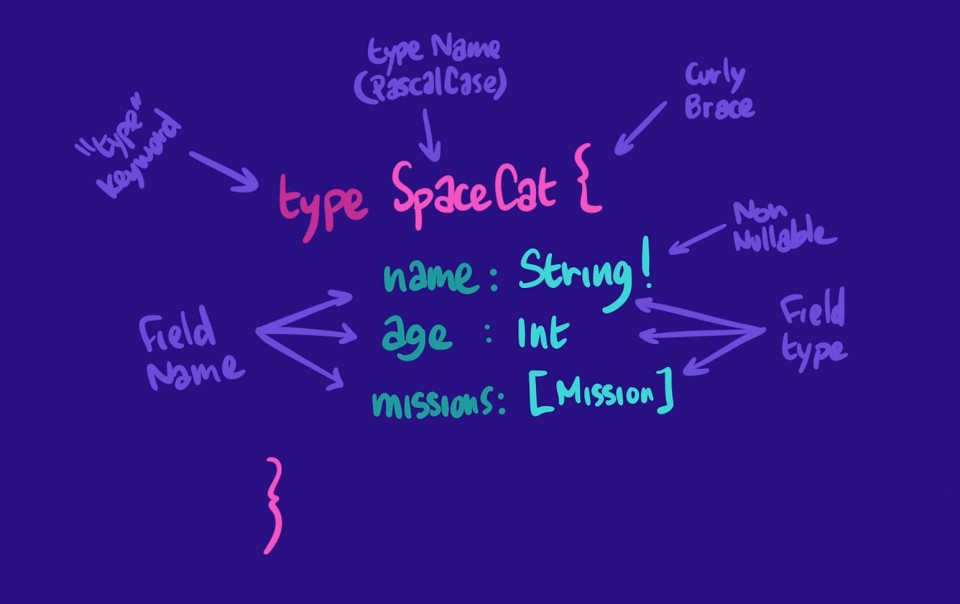 type Name
(PascalCase)
Curly
Brace
"type"
keyword
type SpaceCat {
Non
Nullable
name: String!
Field
Name
age : Int
Field
type
missions: [Mission]
}